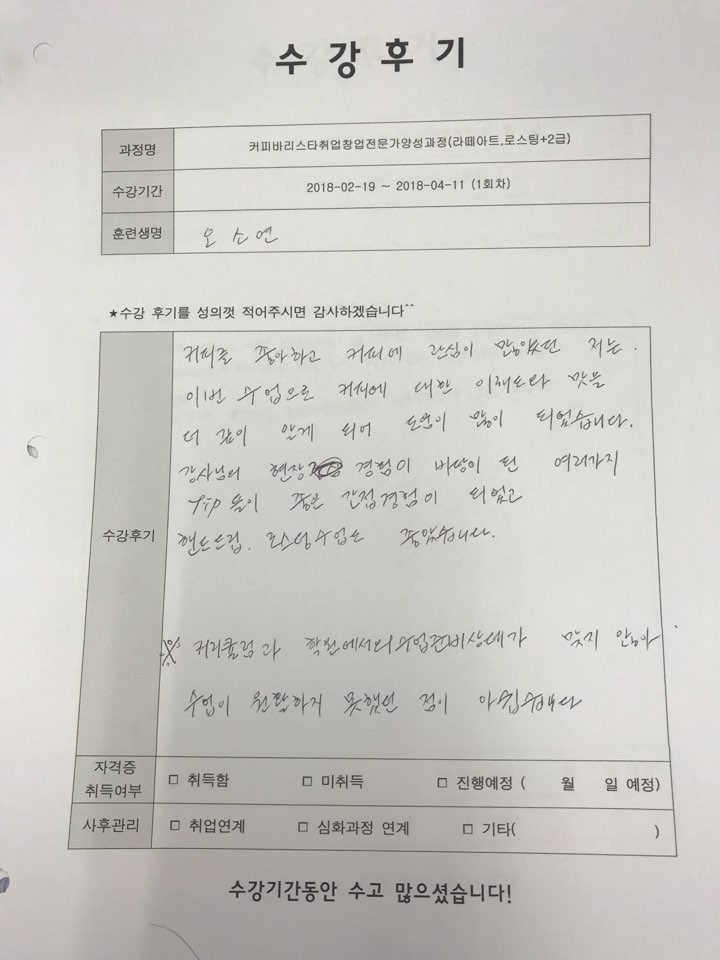 수강후기
과정명 커피바리스타취업창업전문가양성과정(라떼아트,로스팅+2급)
수강기간 2018-02-19 ~ 2018-04-11 (1회차)
훈련생명 오소연
★수강 후기를 성의껏 적어주시면 감사하겠습니다^^
수강후기
커피를 좋아하고 커피에 관심이 많았던 저는.
이번 수업으로 커피에 대한 이해도와 맛을
더 깊이 알게 되어 도움이 많이 되었습니다.
강사님의 현장 경험이 바탕이 된 여러가지
Tip 들이 좋은 간접경험이 되었고
핸드드립, 로스팅수업도 좋았습니다.
※ 커리큘럼과 학원에서의 수업준비상태가 맞지 않아
수업이 원활하지 못했던 점이 아쉽습니다
자격증 취득여부 □ 취득함 □ 미취득 □ 진행예정 ( 월 일 예정)
사후관리 □ 취업연계 □ 심화과정 연계 □ 기타( )
수강기간동안 수고 많으셨습니다!